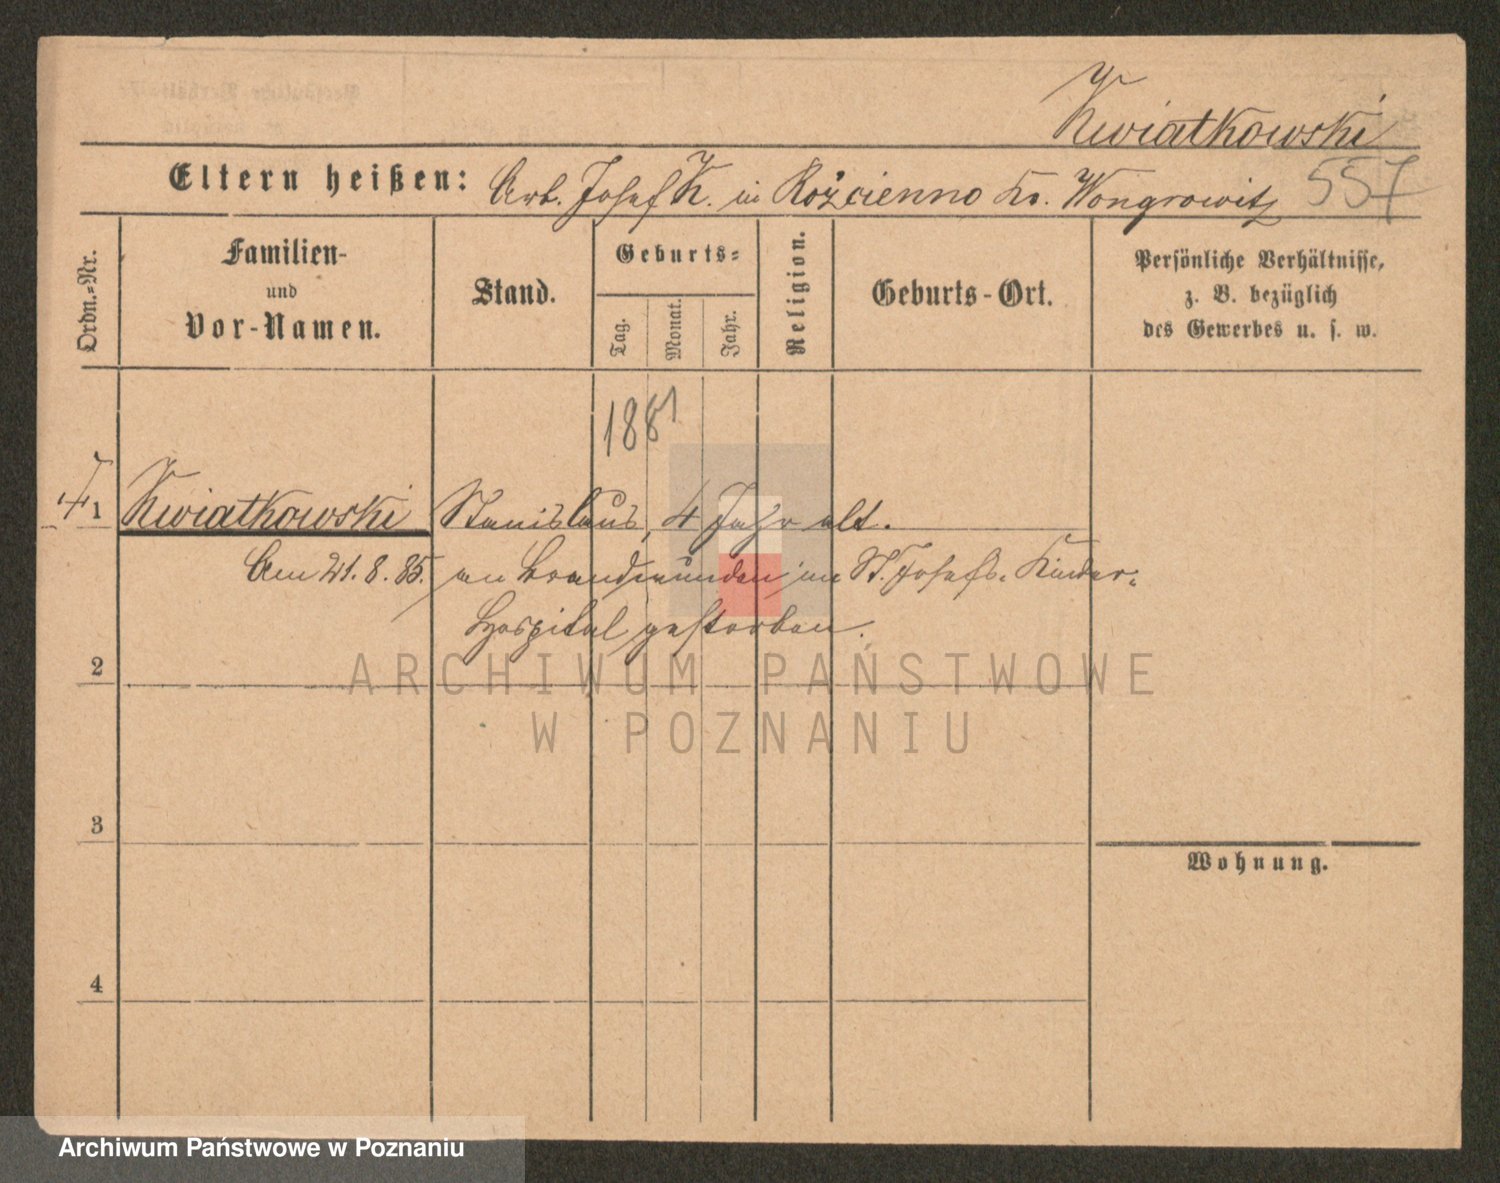 Kwiatkowski
Eltern heißen: Arb. Josef K. in Rożcienno Kr. Wongrowitz 557
Ordn.-Nr.
Familien-
und
Vor-Namen.
Stand.
Geburts-
Tag.
Monat.
Jahr.
Religion.
Geburts-Ort.
Persönliche Verhältnisse,
z. B. bezüglich
des Gewerbes u. s. w.
1881
1 Kwiatkowski Stanislaus, 4 Jahr alt.
Am 21.8.85. an Brandwunden im St. Josefs-Kinder-
Hospital gestorben.
2
ARCHIWUM PAŃSTWOWE
W POZNANIU
3
Wohnung.
4
Archiwum Państwowe w Poznaniu